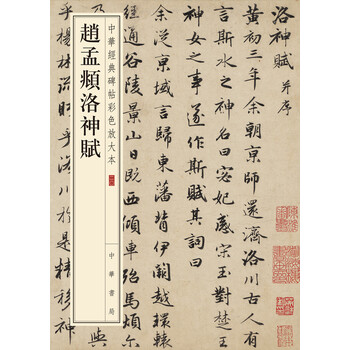 中華經典碑帖彩色放大本
趙孟頫洛神賦
中華書局
洛神賦 并序
黃初三年余朝京師還濟洛川古人
言斯水之神名曰宓妃感宋玉對楚王
神女之事遂作斯賦其詞曰
余從京域言歸東藩背伊闕越轘轅
經通谷陵景山日既西傾車殆馬煩尒
與
乎楊林流洛川於是精移神